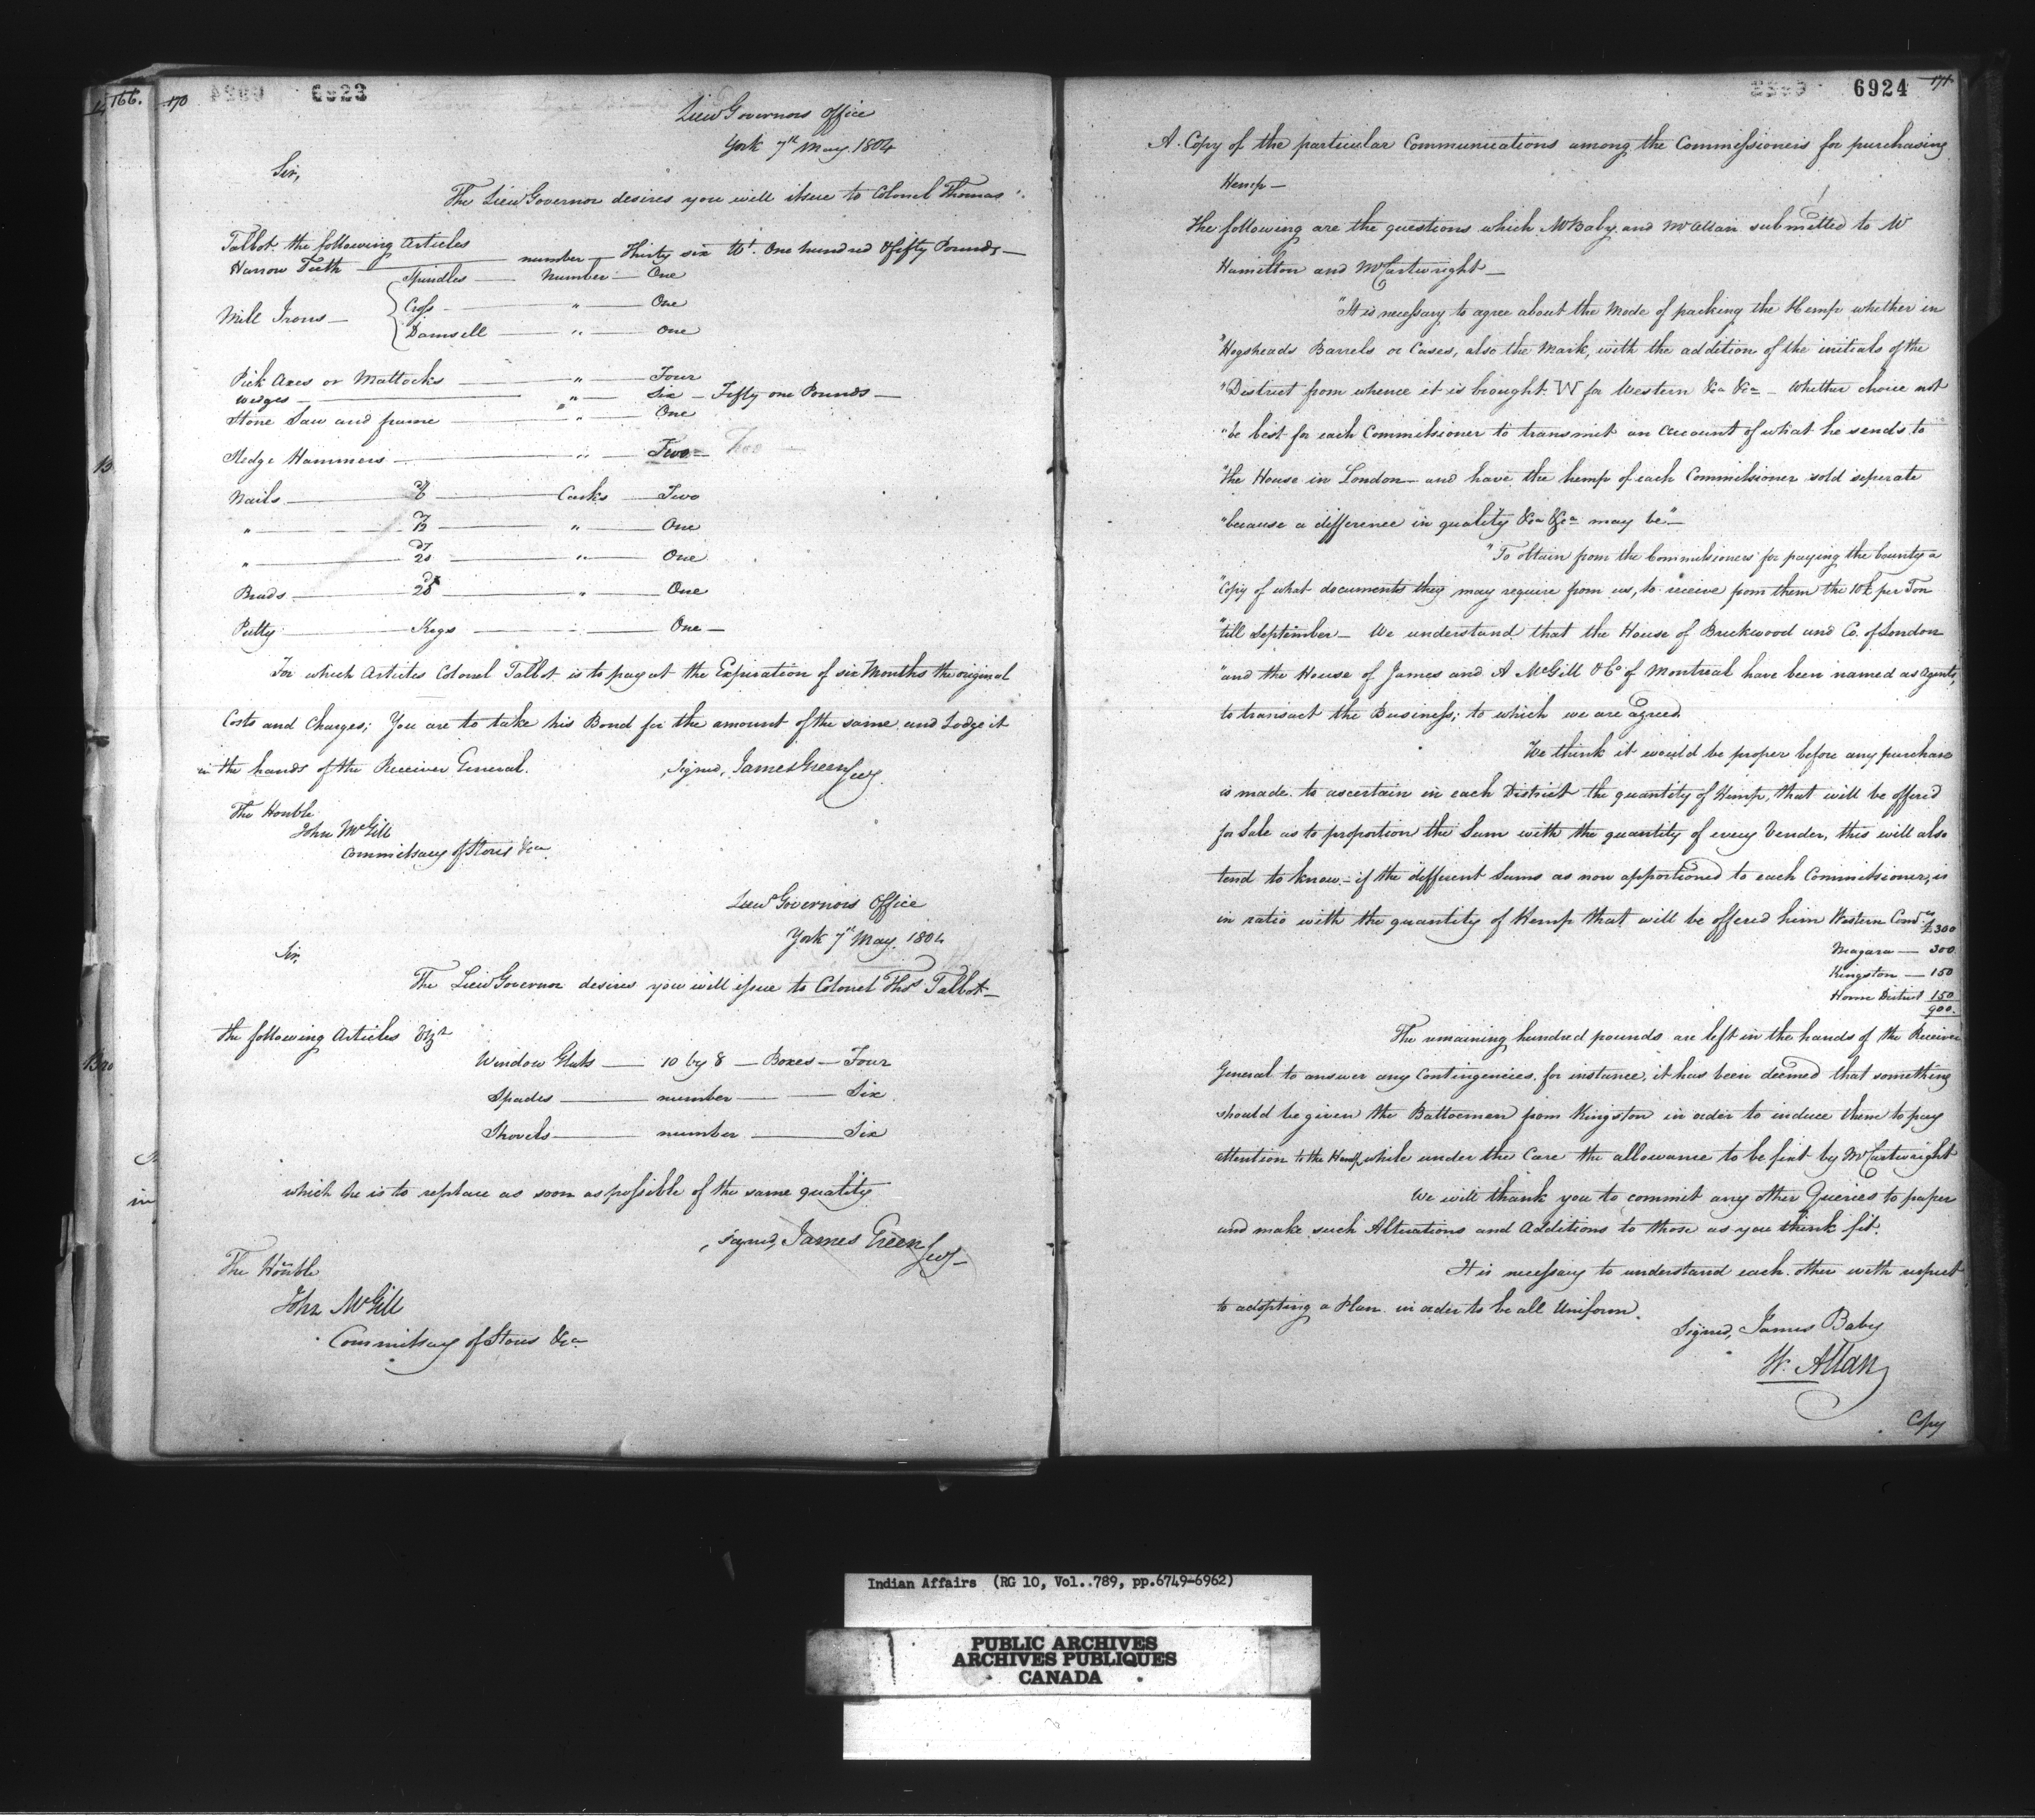 166.
170
6923
Lieut Governors Office
York 7th May. 1804
Sir,
The Lieut Governor desires you will issue to Colonel Thomas
Talbot the following Articles
Harrow Teeth — number — Thirty six Wt. One hundred & fifty Pounds —
Mill Irons — Spindles — Number — One
Cross — " — One
Damsell — " — One
Pick Axes or Mattocks — " — Four
Wedges — " — Six — Fifty one Pounds —
Stone Saw and frame — " — One
Sledge Hammers — " — Two — Two —
Nails — dy 6 — Casks — Two
" — dy 12 — " — One
" — dy 20 — " — One
Brads — dy 20 — " — One
Putty — Kegs — " — One —
For which Articles Colonel Talbot is to pay at the Expiration of six Months the original
Costs and Charges; You are to take his Bond for the amount of the same and Lodge it
in the hands of the Receiver General.
Signed, James Green Secy.
The Honble
John McGill
Commissary of Stores &ca
Lieut Governors Office
York 7th May. 1804
Sir,
The Lieut Governor desires you will issue to Colonel Thos Talbot —
the following Articles Vizt
Window Glass — 10 by 8 — Boxes — Four
Spades — number — Six
Shovels — number — Six
which he is to replace as soon as possible of the same quality
signed, James Green Secy —
The Honble
John McGill
Commissary of Stores &ca
6924
171
A Copy of the particular Communications among the Commissioners for purchasing
Hemp —
The following are the questions which Mr Baby and Mr Allan submitted to Mr
Hamilton and Mr Cartwright —
"It is necessary to agree about the Mode of packing the Hemp whether in
"Hogsheads Barrels or Cases, also the Mark, with the addition of the initials of the
"District from whence it is brought. W for Western &ca &ca — Whether choice not
"be best for each Commissioner to transmit an account of what he sends to
"the House in London — and have the hemp of each Commissioner sold seperate
"because a difference in quality &ca &ca may be" —
"To obtain from the Commissioners for paying the bounty a
"Copy of what documents they may require from us, to receive from them the 10£ per Ton
"till September — We understand that the House of Bruckwood and Co. of London
"and the House of James and A McGill & Co of Montreal have been named as Agents,
to transact the Business; to which we are agreed
We think it would be proper before any purchase
is made. to ascertain in each District the quantity of Hemp, that will be offered
for Sale as to proportion the Sum with the quantity of every Vender, this will also
tend to know — if the different Sums as now apportioned to each Commissioner, is
in ratio with the quantity of Hemp that will be offered him Western Comrs £300
Niagara — 300
Kingston — 150
Home District 150
900.
The remaining hundred pounds are left in the hands of the Receiver
General to answer any Contingencies. for instance, it has been deemed that something
should be given the Battoemen from Kingston in order to induce them to pay
attention to the Hemp while under the Care the allowance to be fixt by Mr Cartwright
We will thank you to commit any other Queries to paper
and make such Alterations and Additions to those as you think fit.
It is necessary to understand each other with respect
to adopting a Plan in order to be all Uniform.
Signed, James Baby
W. Allan
Copy
Indian Affairs (RG 10, Vol. 789, pp.6749-6962)
PUBLIC ARCHIVES
ARCHIVES PUBLIQUES
CANADA